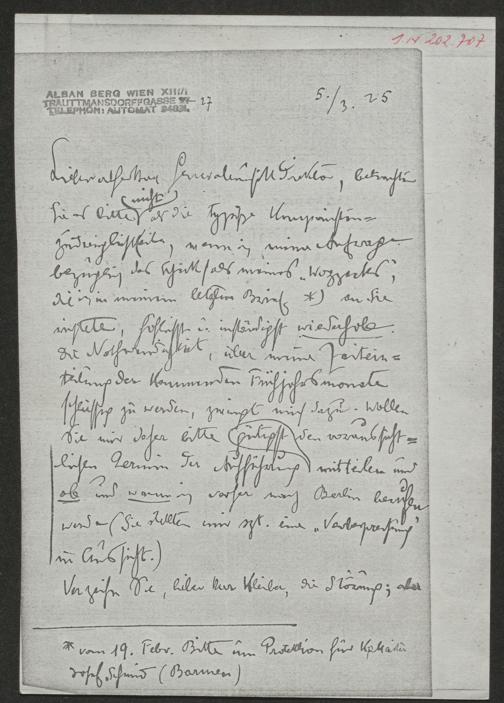 1.N 202.707
ALBAN BERG WIEN XIII/1
TRAUTTMANSDORFFGASSE 27
TELEPHON: AUTOMAT
5./3. 25
Lieber verehrter Herr Generalmusikdirektor, betrachten
Sie es bitte nicht als die typische Komponisten=
zudringlichkeit, wenn ich meine Anfrage
bezüglich des Schicksals meines „Wozzecks",
die ich in meinem letzten Brief *) an Sie
richtete, höflichst u. inständigst wiederhole.
Die Nothwendigkeit, über meine Zeitein=
teilung der kommenden Frühjahrsmonate
schlüssig zu werden, zwingt mich dazu. Wollen
Sie mir daher bitte gütigst den voraussicht=
lichen Termin der Aufführung mitteilen und
ob und wann ich vorher nach Berlin berufen
werde (Sie stellten mir szt. eine „Vorbesprechung"
in Aussicht.)
Verzeihn Sie, lieber Herr Kleiber, die Störung; aber
* vom 19. Febr. Bitte um Protektion für Kplmstr
Josef Schmid (Barmen)